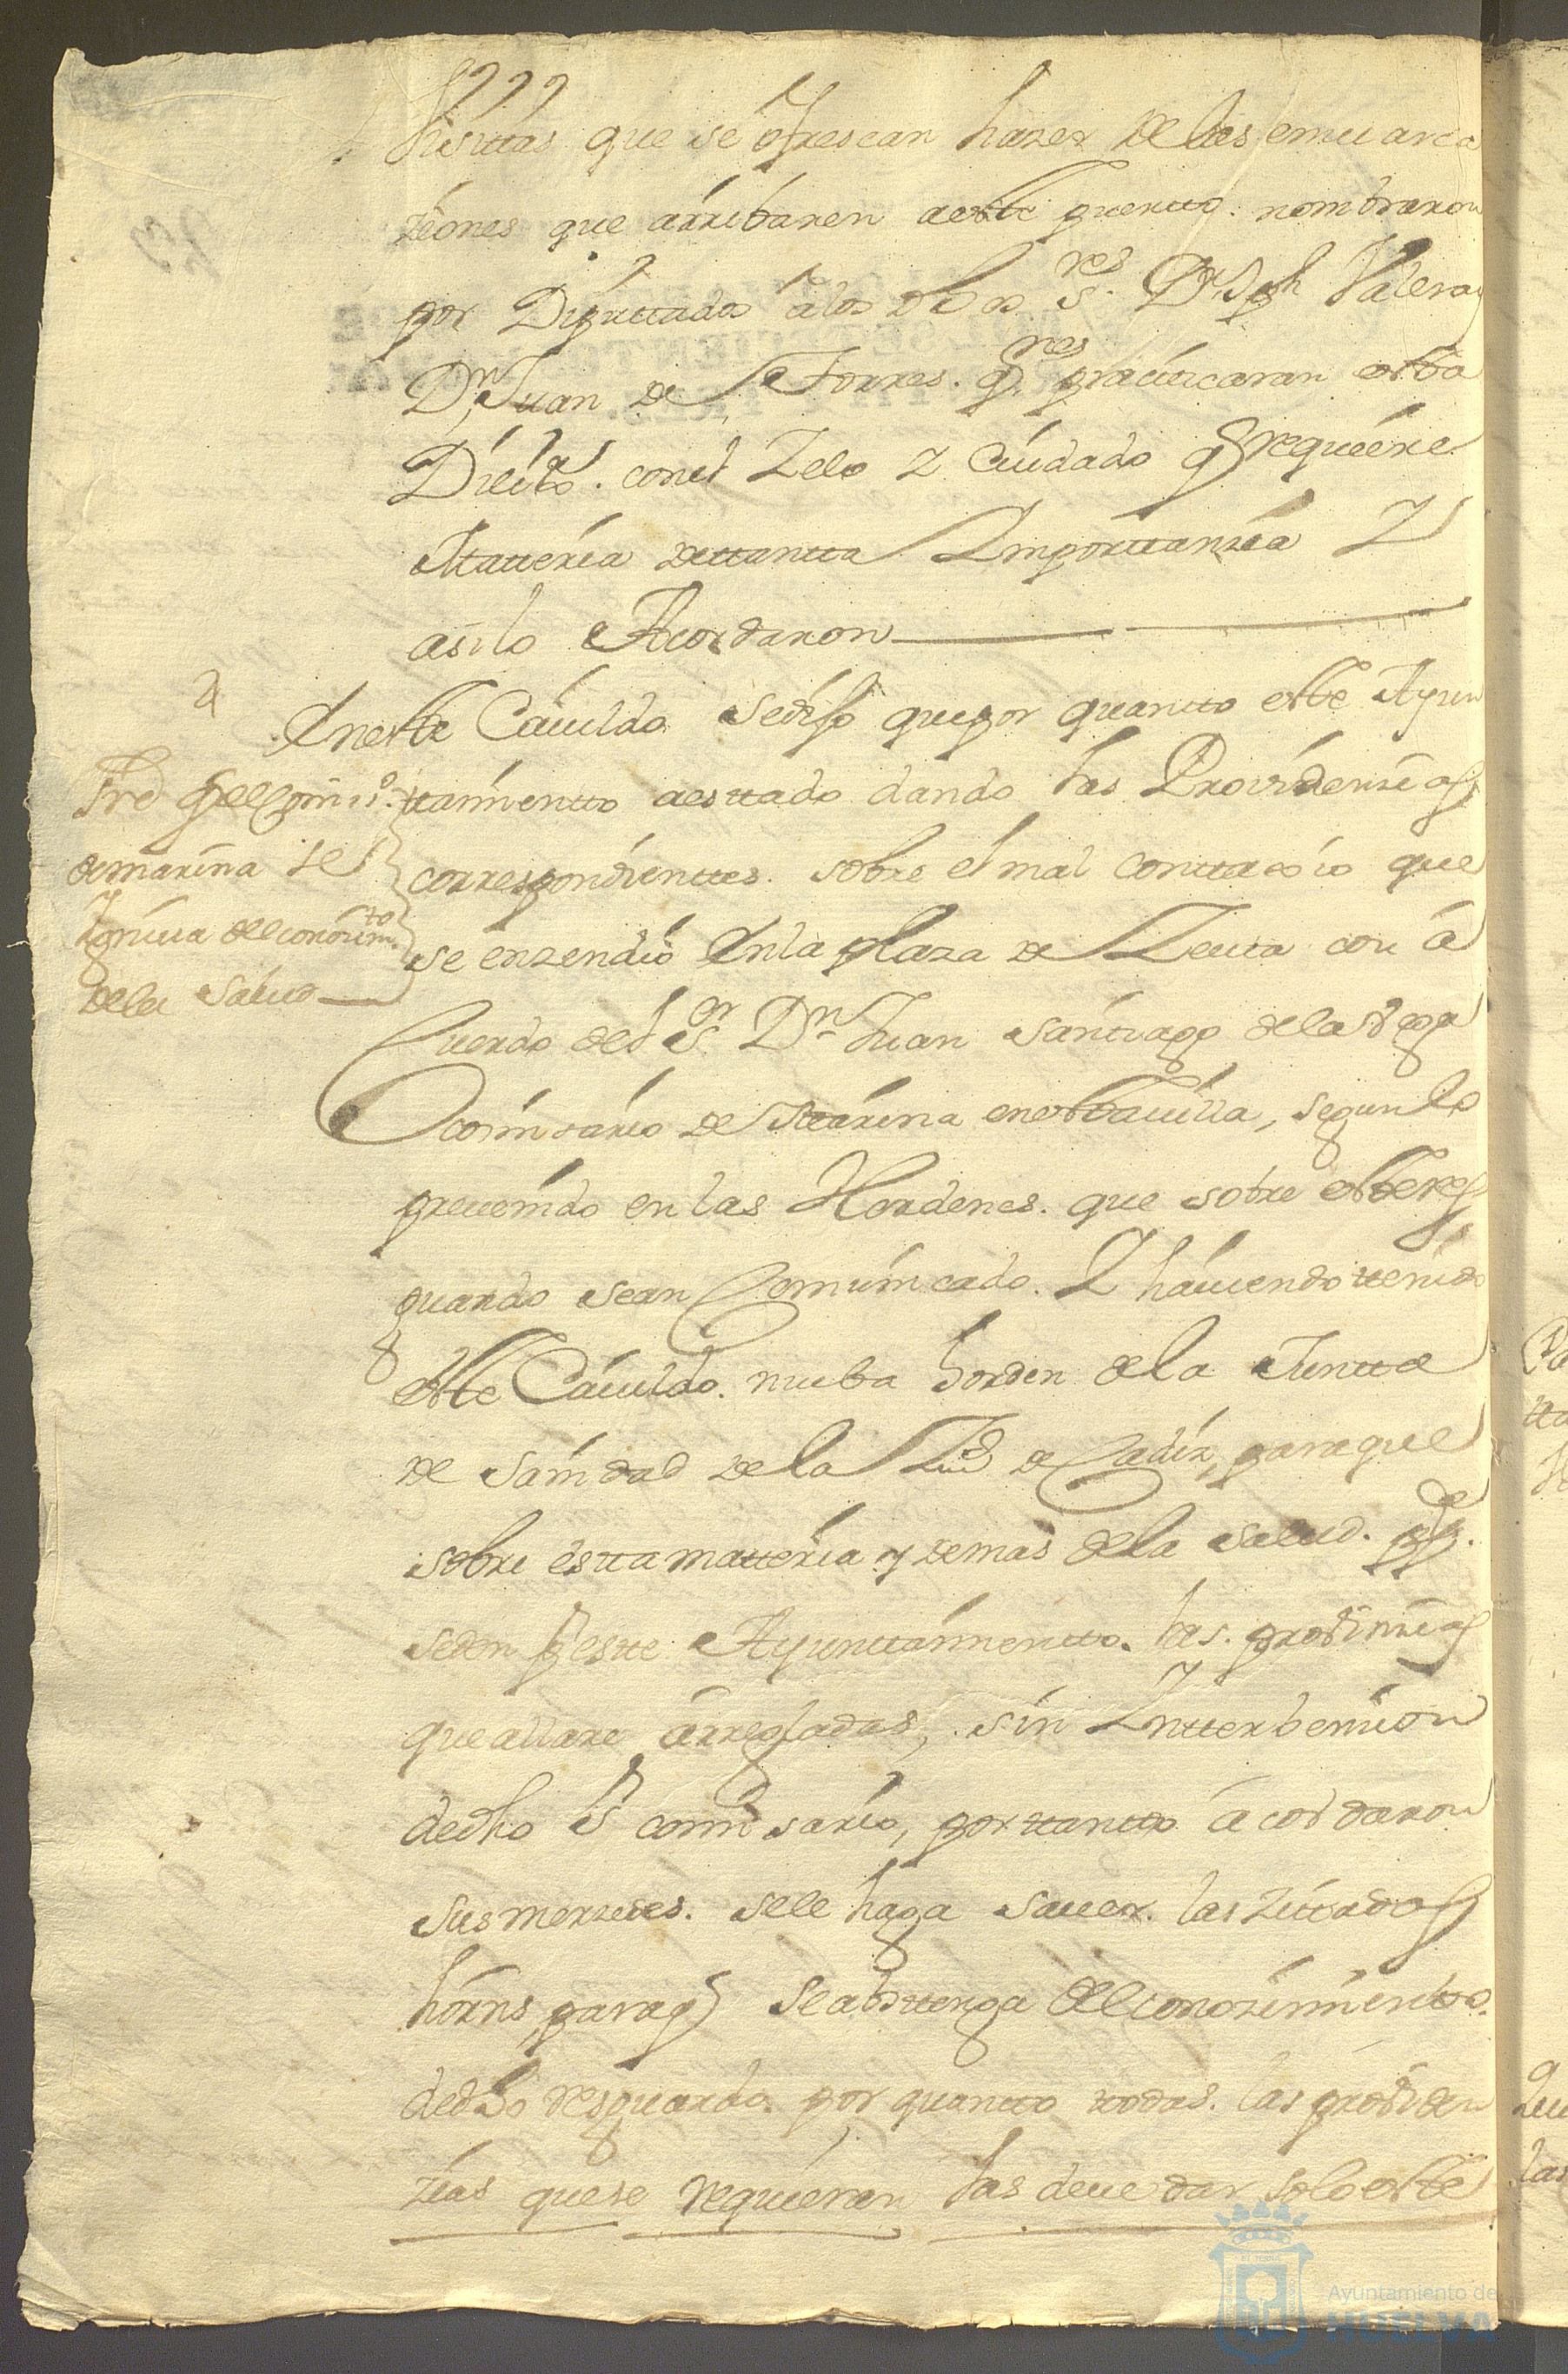 Visittas que se ofrescan hazer de las emuarca
ziones que arribaren a estte puertto. nombraron
por Diputtados a los dhos S.res Dn. Jph Valera y
Dn. Juan de Torres. q.nes practticaran estta
Dilix.as con el Zelo y Cuidado q requiere
Matteria de ttantta Importtanzia Y
asi lo Acordaron
En estte Cauildo se dijo que por quantto estte Ayun
ttamientto a esttado dando las Providenzias
correspondienttes. sobre el mal conttagio que
se enzendio En la plaza de Zeuta con a
Cuerdo del S.or Dn. Juan Santiago de la Vega
Comisario de Marina en estta villa, segun lo
preuenido en las Hordenes. que sobre estte res
guardo sean Comunicado. Y hauiendo tenido
estte Cauildo. nueba horden de la Juntta
de Sanidad de la Ziud de Cadiz, para que
sobre estta matteria y demas de la Salud. pp.ca
se den p estte Ayunttamientto. las providenzias
que allare arregladas, sin Intterbenzion
de dho S.r comisario, por ttantto acordaron
sus merzedes. se le haga sauer. las zittadas
horns, para q se abstenga del conozimientto.
de dho resguardo. por quantto todas. las providen
zias que se requieran las deue dar solo estte
Que el comis.o
de marina se
Ynivia del conozim.to
de la Salud
Ayuntamiento de
HUELVA